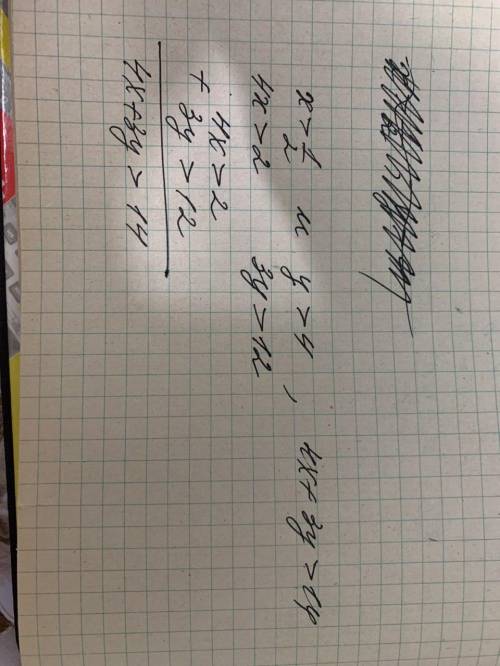 x > 1/2 и y > 4, 4x + 3y > 14
4x > 2 3y > 12
4x > 2
+
3y > 12
4x + 3y > 14